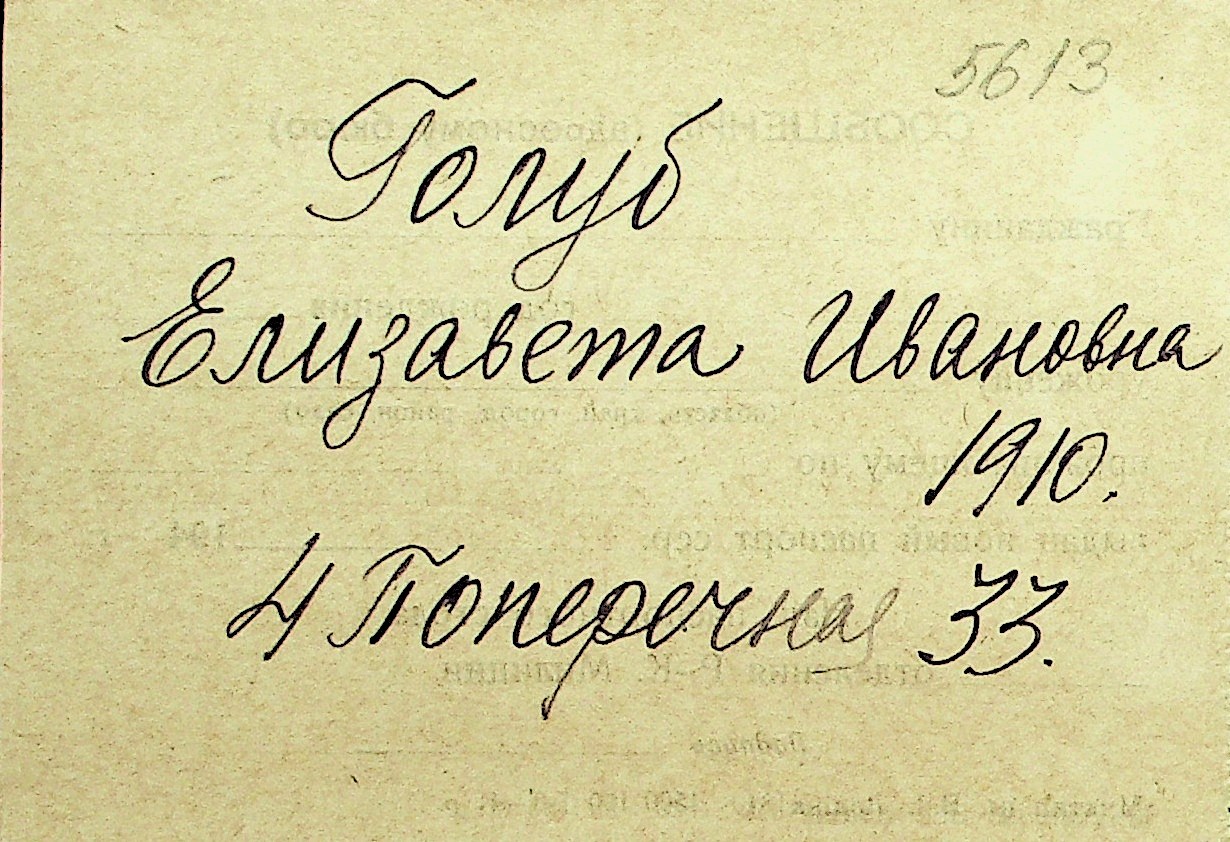 5613
Голуб
Елизавета Ивановна
1910.
4 Поперечная 33.